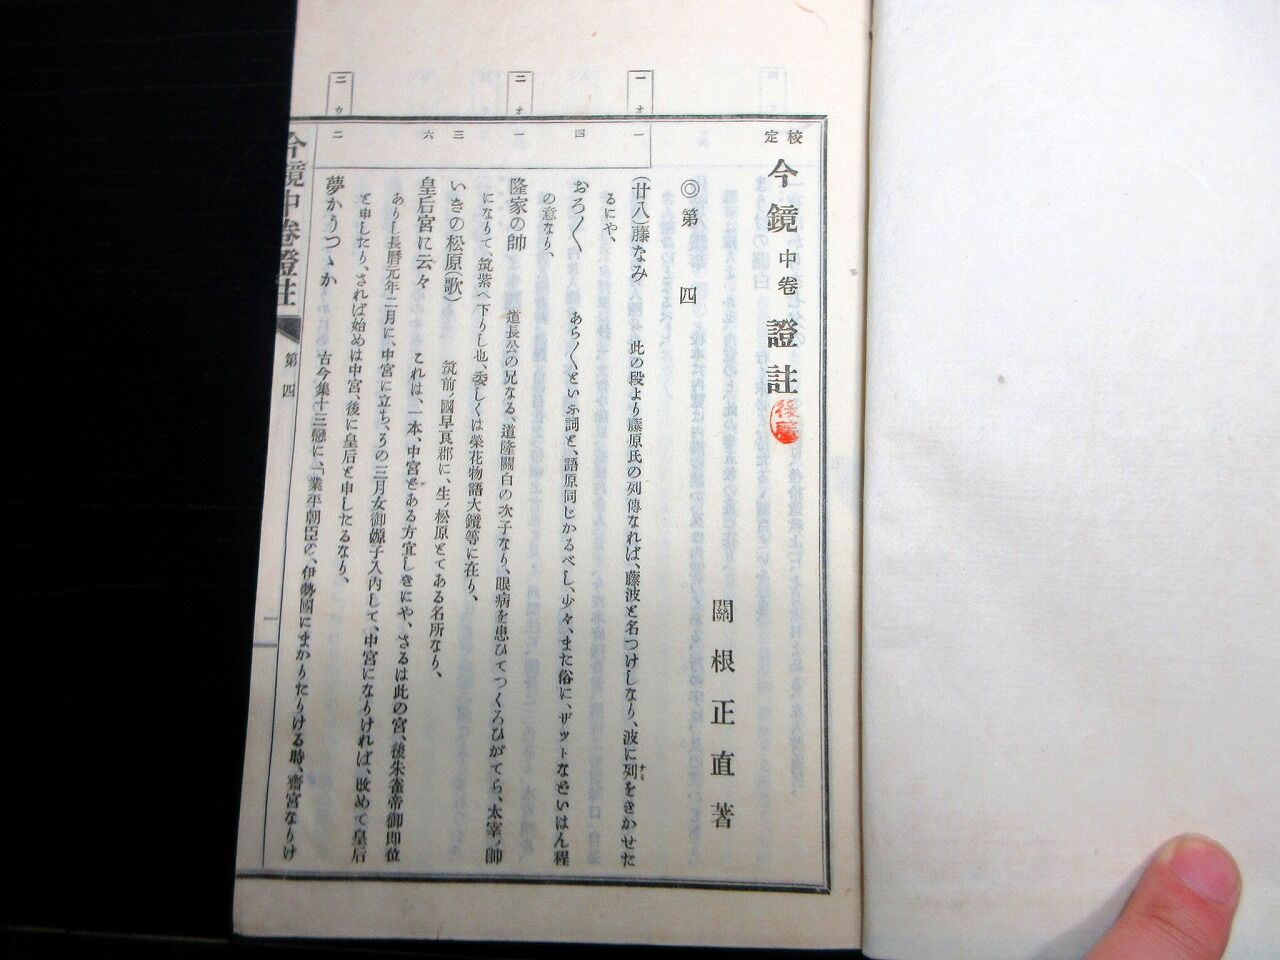 校定 今鏡中卷證註
後藤
關根正直著
◎第四
一オ
一
(廿八)藤なみ 此の段より藤原氏の列傳なれば、藤波と名つけしなり、波に列をきかせた
るにや、
四
おろ〱 あら〱といふ詞と、語原同じかるべし、少々、また俗に、ザットなどいはん程
の意なり、
二オ
一
隆家の帥 道長公の兄なる、道隆關白の次子なり、眼病を患ひてつくろひがてら、太宰ノ帥
になりて、筑紫へ下りし也、委しくは榮花物語大鏡等に在り、
三
いきの松原(歌) 筑前ノ國早良郡に、生ノ松原とてある名所なり、
六
皇后宮に云々 これは、一本、中宮とある方宜しきにや、さるは此の宮、後朱雀帝御即位
ありし長曆元年二月に、中宮に立ち、その三月女御嫄子入内して、中宮になりければ、改めて皇后
と申したり、されば始めは中宮、後に皇后と申したるなり、
二ウ
二
夢かうつゝか 古今集十三戀に、「業平朝臣の、伊勢國にまかりたりける時、齋宮なりけ
今鏡中卷證註 第四 一